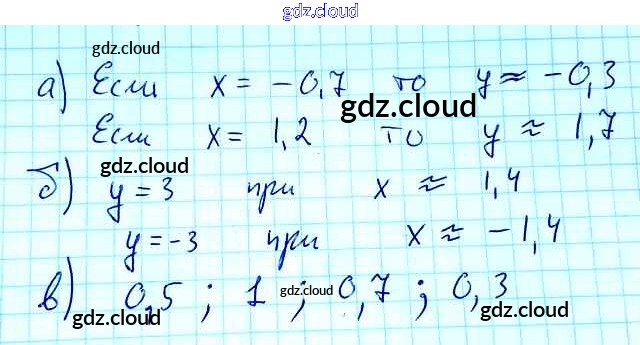 gdz.cloud
gdz.cloud gdz.cloud
а) Если x = -0,7 то y ≈ -0,3
gdz.cloud
Если x = 1,2 то y ≈ 1,7
gdz.cloud
б) y = 3 при x ≈ 1,4
gdz.cloud
y = -3 при x ≈ -1,4
в) 0,5 ; 1 ; 0,7 ; 0,3
gdz.cloud
gdz.cloud gdz.cloud